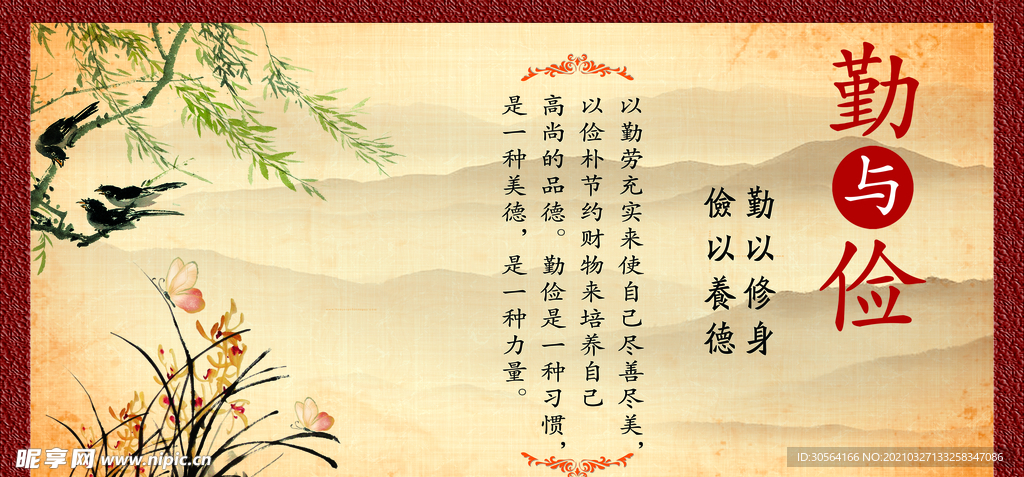 勤与俭
勤以修身
儉以養德
以勤劳充实来使自己尽善尽美，
以俭朴节约财物来培养自己
高尚的品德。勤俭是一种习惯，
是一种美德，是一种力量。
昵享网 www.nipic.cn
ID:30564166 NO:20210327133258347086